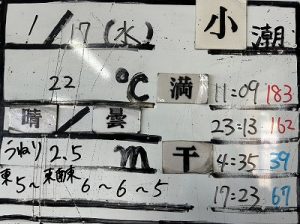 1/17(水) 小潮
22 ℃ 満 11:09 183
晴/曇 23:13 162
うねり 2.5 m 干 4:35 39
東5~東南東6~6~5 17:23 67